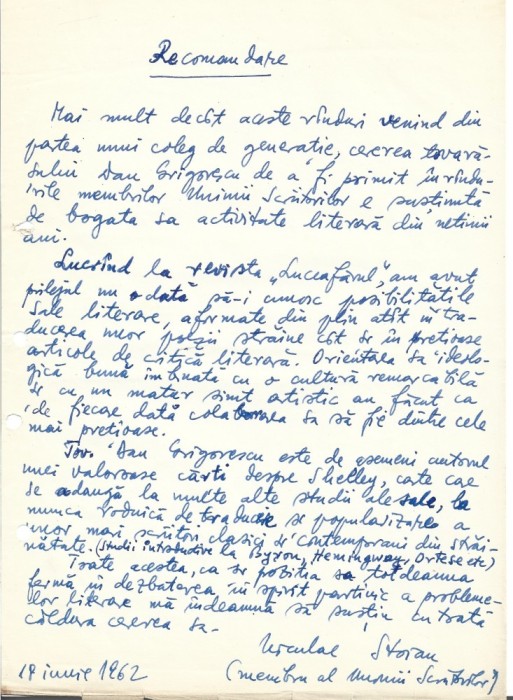 Recomandare
Mai mult decît aceste rînduri venind din
partea unui coleg de generație, cererea tovară-
șului Dan Grigorescu de a fi primit în rîndu-
rile membrilor Uniunii Scriitorilor e susținută
de bogata sa activitate literară din
ani.
Lucrînd la revista „Luceafărul”, am avut
prilejul nu odată să-i cunosc posibilitățile
sale literare, afirmate din plin atît în tra-
ducerea unor poezii străine cît și în prețioase
articole de critică literară. Orientarea sa ideolo-
gică bună îmbinată cu o cultură remarcabilă
și cu un matur simț artistic au făcut ca
de fiecare dată colaborarea sa să fie dintre cele
mai prețioase.
Tov. Dan Grigorescu este de asemeni autorul
unei valoroase cărți despre Shelley, carte care
se adaugă la multe alte studii ale sale, la
munca rodnică de traducere și popularizare a
unor mari scriitori clasici și contemporani din străi-
nătate. (Studii introductive la Byron, Hemingway, Ortese etc)
Toate acestea, ca și poziția sa totdeauna
fermă în dezbaterea în spirit partinic a probleme-
lor literare mă îndeamnă să susțin cu toată
căldura cererea sa.
Niculae Stoian
(membru al Uniunii Scriitorilor)
19 iunie 1962